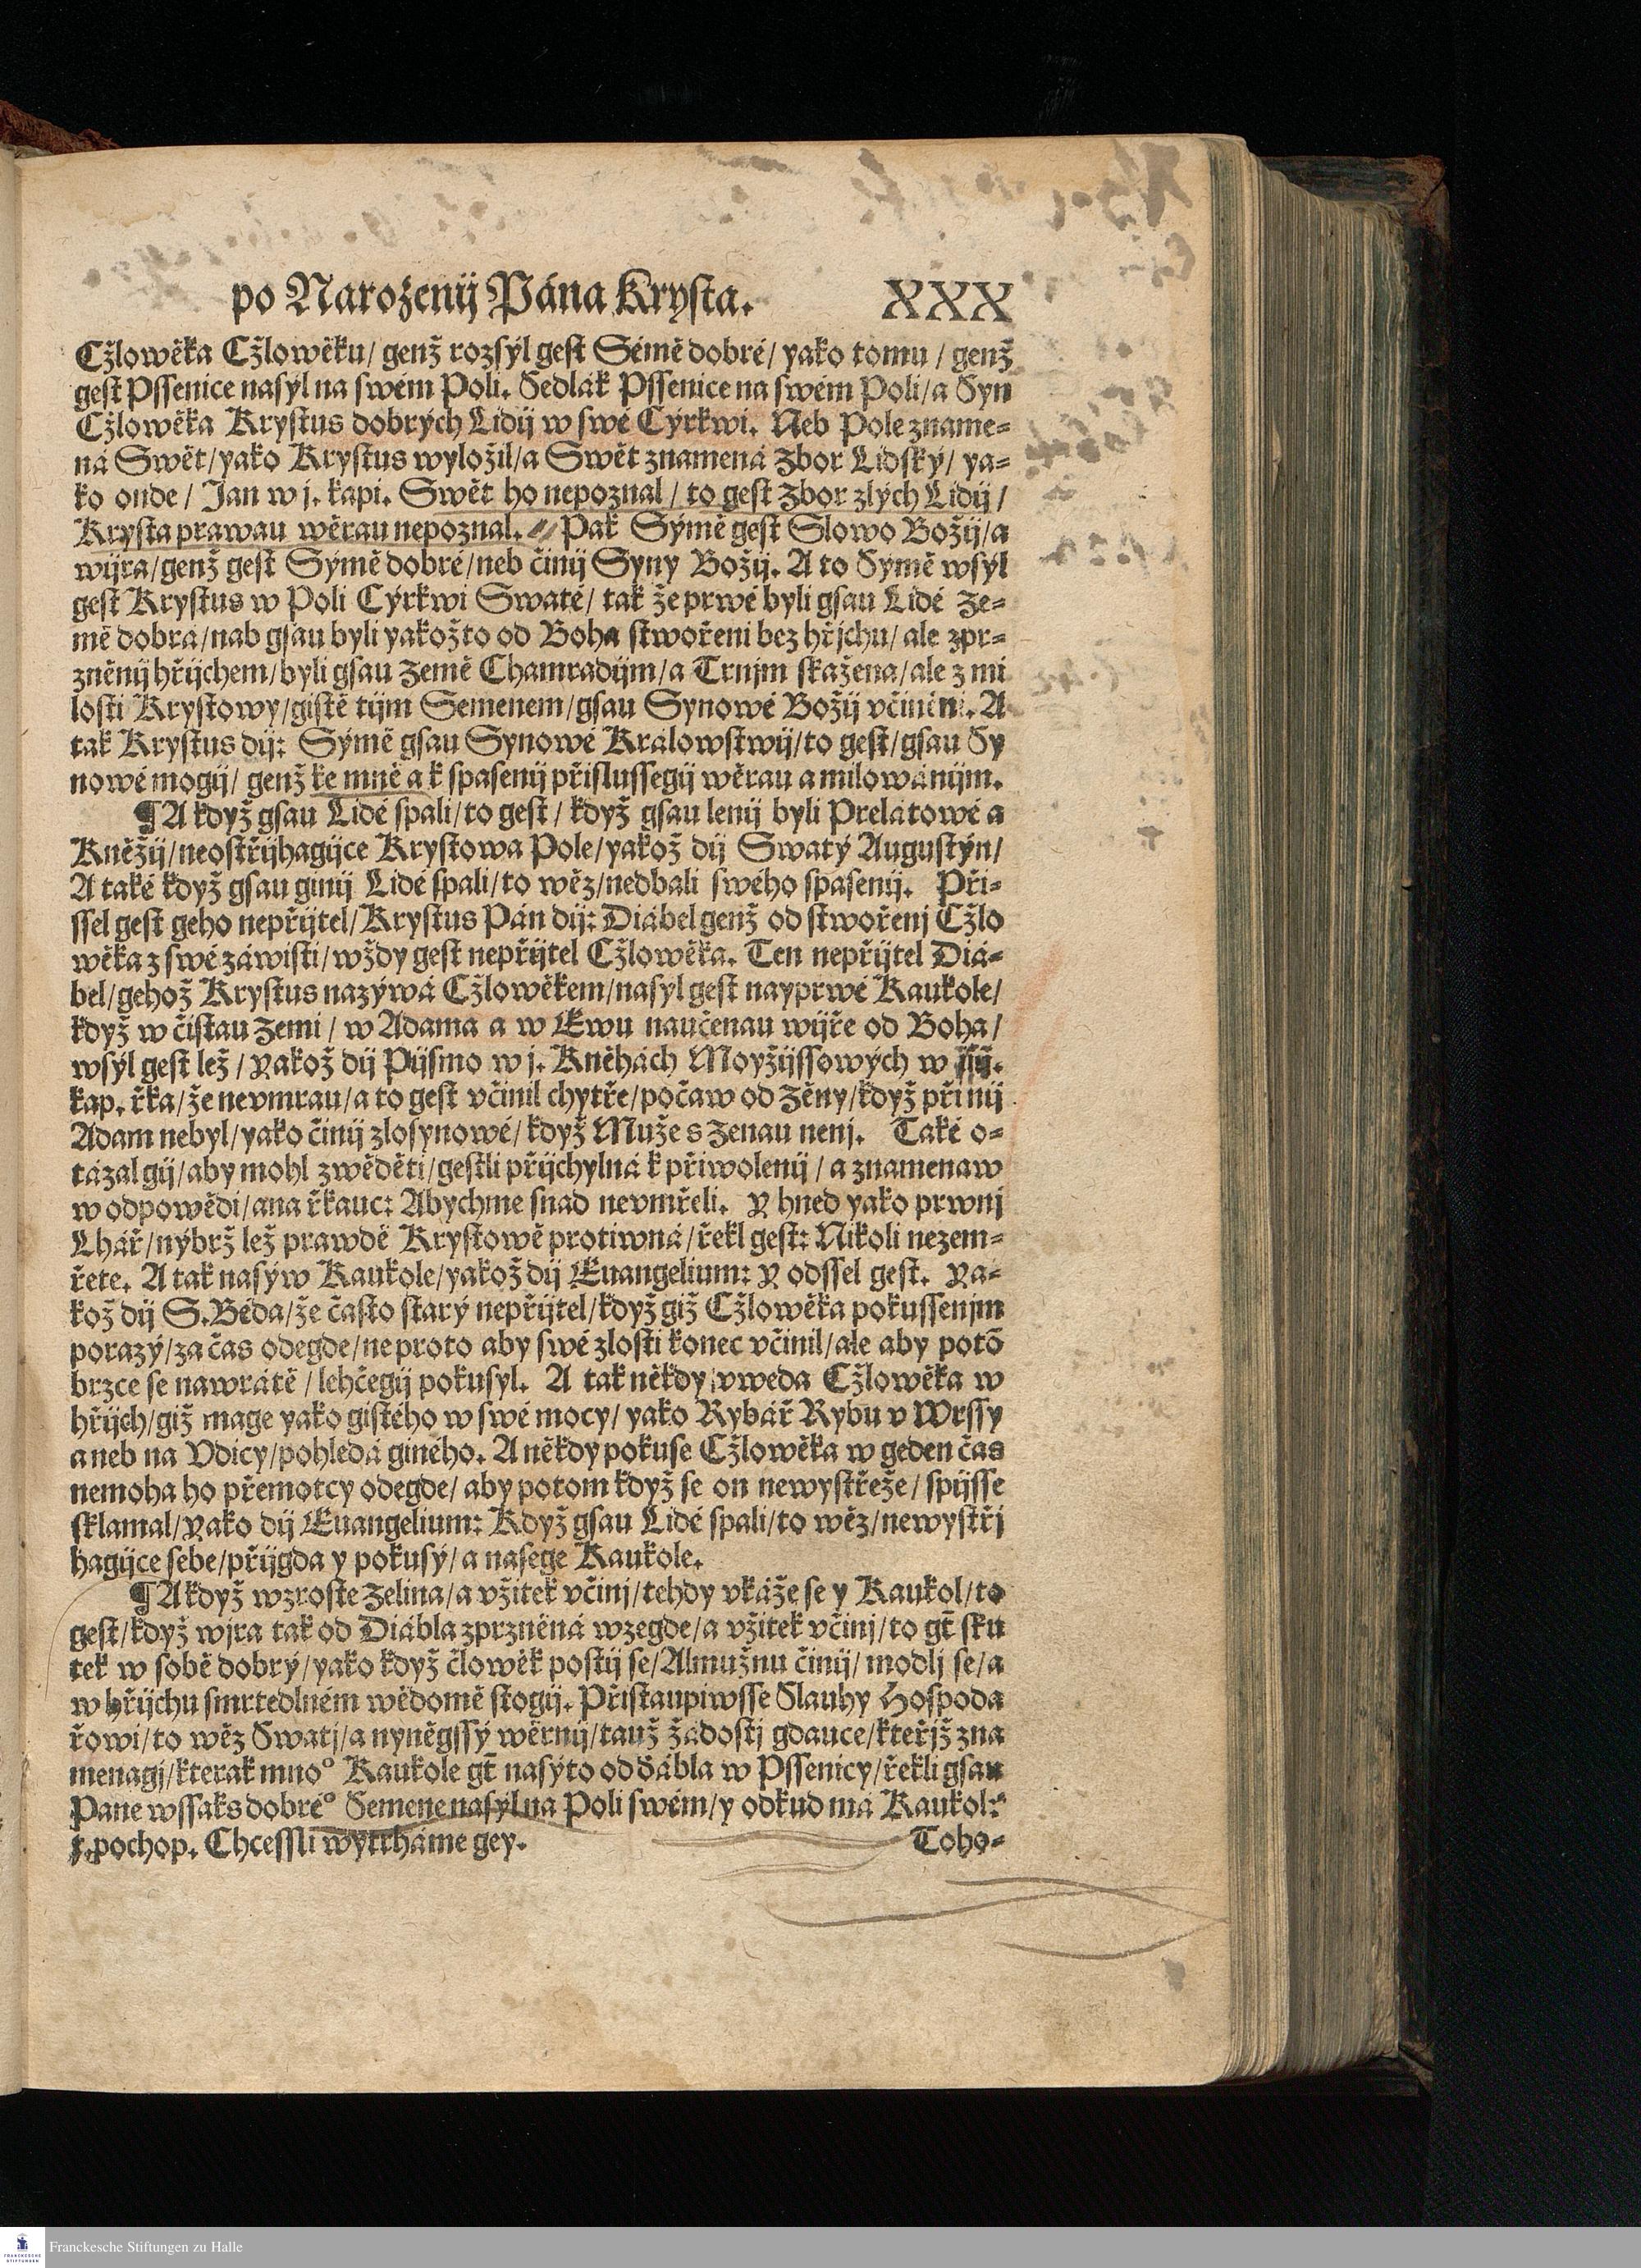 po Narozenij Pána Krysta. XXX
Cžlowěka Cžlowěku/ genž rozsýl gest Sémě dobré/ yako tomu / genž
gest Pssenice nasýl na swém Poli. Sedlák Pssenice na swém Poli/a Syn
Cžlowěka Krystus dobrých Lidij w swé Cýrkwi. Neb Pole zname-
ná Swět/yako Krystus wyložil/a Swět znamená Zbor Lidský/ ya-
ko onde/ Jan w j. kapi. Swět ho nepoznal / to gest Zbor zlých Lidij /
Krysta prawau wěrau nepoznal. Pak Sýmě gest Slowo Božij/a
wijra/genž gest Sýmě dobré/neb činij Syny Božij. A to Sýmě wsýl
gest Krystus w Poli Cýrkwi Swaté/ tak že prwé byli gsau Lidé Ze-
mě dobrá/nab gsau byli yakožto od Boha stwořeni bez hřjchu/ ale zpr-
zněnij hřijchem/byli gsau Země Chamradijm/a Trnjm skažená/ale z mi
losti Krystowy/gistě tijm Semenem/gsau Synowé Božij včiněni. A
tak Krystus dij: Sýmě gsau Synowé Králowstwij/to gest/gsau Sy
nowé mogij/ genž ke mně a k spasenij přislussegij wěrau a milowánijm.
¶A když gsau Lidé spali/to gest/ když gsau lenij byli Prelátowé a
Kněžij/neostřijhagijce Krystowa Pole/yakož dij Swatý Augustýn/
A také když gsau ginij Lidé spali/to wěz/nedbali swého spasenij. Při-
ssel gest geho nepřijtel/Krystus Pán dij: Diábel genž od stwořenj Cžlo
wěka z swé záwisti/wždy gest nepřijtel Cžlowěka. Ten nepřijtel Diá-
bel/gehož Krystus nazýwá Cžlowěkem/nasýl gest nayprwé Kaukole/
když w čistau Zemi / w Adama a w Ewu naučenau wijře od Boha/
wsýl gest lež / yakož dij Pijsmo w j. Kněhách Moyžijssowých w iij.
kap. řka/že nevmrau/a to gest včinil chytře/počaw od Zěny/když při nij
Adam nebyl/yako činij zlosynowé/když Muže s Zenau nenj. Také o-
tázal gij/aby mohl zwěděti/gestli přijchylná k přiwolenij / a znamenaw
w odpowědi/ana řkauc: Abychme snad nevmřeli. Y hned yako prwnj
Lhář/nýbrž lež prawdě Krystowě protiwná/řekl gest: Nikoli nezem-
řete. A tak nasýw Kaukole/yakož dij Euangelium: Y odssel gest. Ya-
kož dij S.Béda/že často starý nepřijtel/když giž Cžlowěka pokussenjm
porazý/za čas odegde/ne proto aby swé zlosti konec včinil/ale aby potō
brzce se nawrátě / lehčegij pokusyl. A tak někdy vweda Cžlowěka w
hřijch/giž mage yako gistého w swé mocy/ yako Rybář Rybu v Wrssy
aneb na Vdicy/pohledá giného. A někdy pokuse Cžlowěka w geden čas
nemoha ho přemotcy odegde/ aby potom když se on newystřeže/ spijsse
sklamal/yako dij Euangelium: Když gsau Lidé spali/to wěz/newystřj
hagijce sebe/přijgda y pokusý/a nasege Kaukole.
¶A když wzroste Zelina/a vžitek včinj/tehdy vkáže se y Kaukol/to
gest/když wjra tak od Diábla zprzněná wzegde/a vžitek včinj/to gt̄ sku
tek w sobě dobrý/yako když člowěk postij se/Almužnu činij/ modlj se/a
w hřijchu smrtedlném wědomě stogij. Přistaupiwsse Slauhy Hospoda
řowi/to wěz Swatj/a nyněgssý wěrnij/tauž žádostj gdauce/kteřjž zna
menagj/kterak mno° Kaukole gt̄ nasýto od ďábla w Pssenicy/řekli gsau
Pane wssaks dobré° Semene nasýl na Poli swém/y odkud má Kaukol:
s.pochop. Chcessli wytrháme gey. Toho-
Franckesche Stiftungen zu Halle